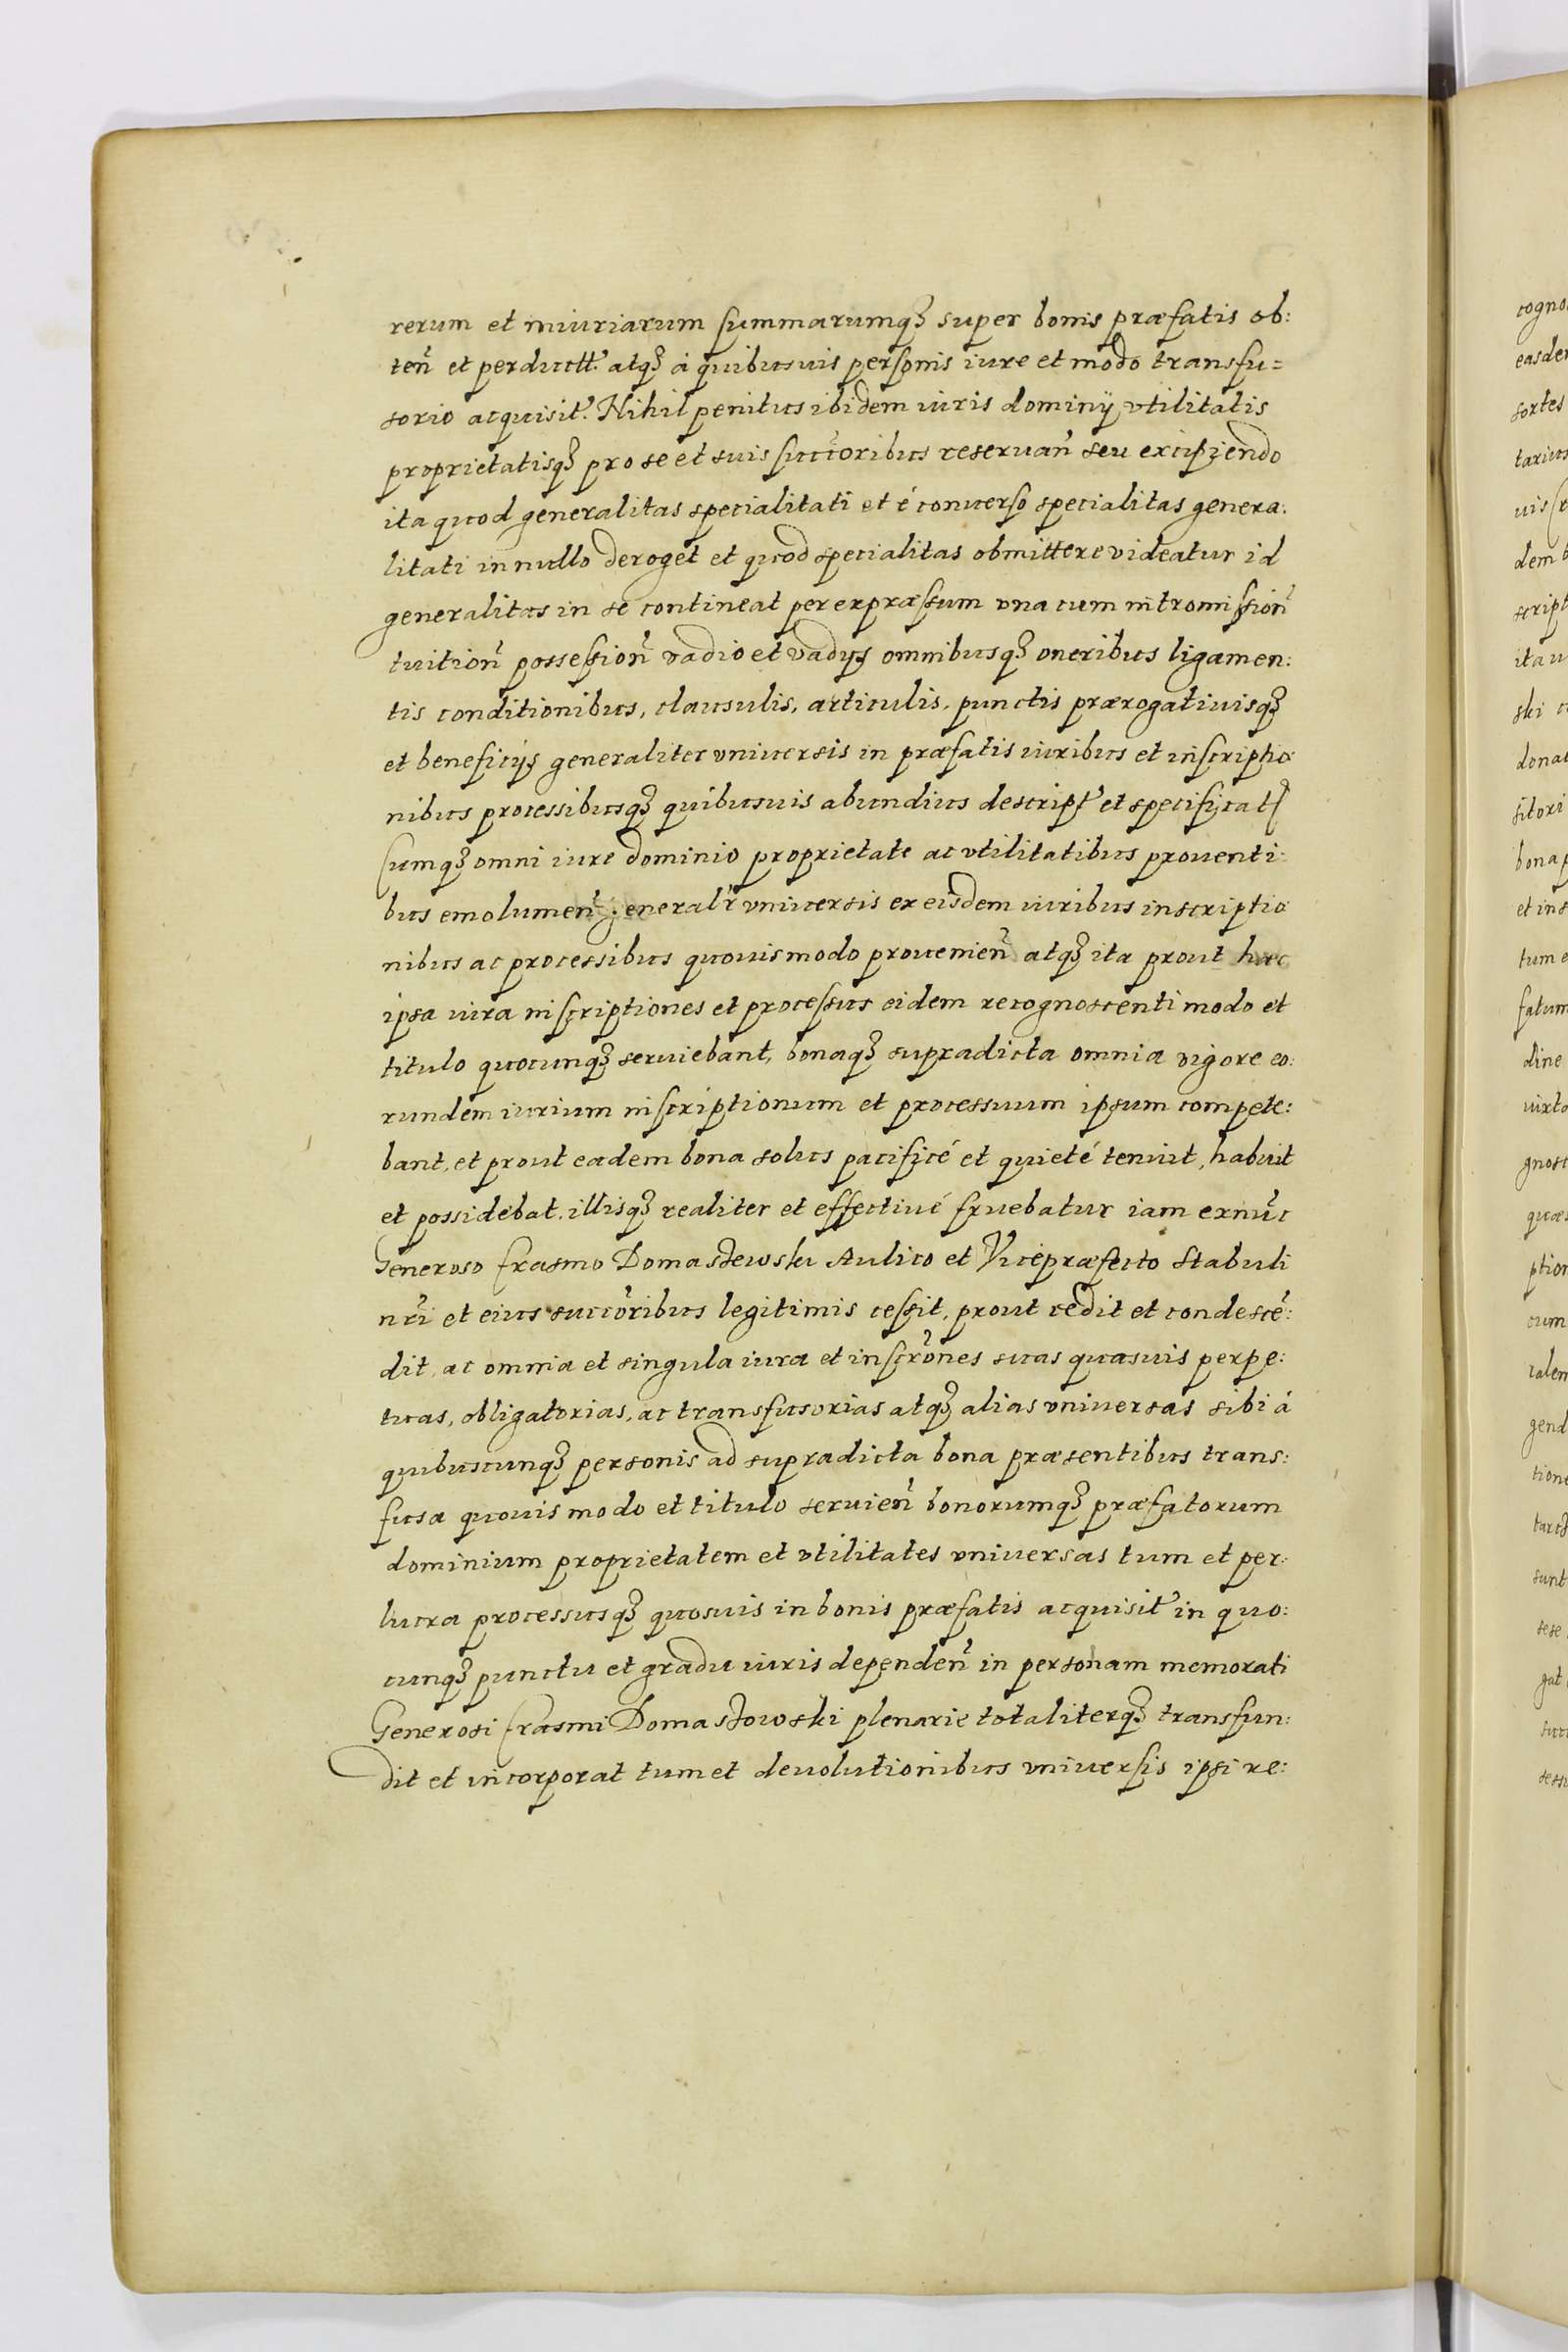 rerum et iniuriarum summarumqȝ super bonis præfatis ob:
ten̄ et perductt. atqȝ à quibusuis personis iure et modo transfu=
sorio acquisit. Nihil penitus ibidem iuris dominij vtilitatis
proprietatisqȝ pro se et suis succ̄oribus reseruan̄ seu excipiendo
ita quod generalitas specialitati et é conuerso specialitas genera:
litati in nullo deroget et quod specialitas obmittere videatur id
generalitas in se contineat per expræssum vna cum intromission̄
tuition̄ possession̄ vadio et vadijs omnibusqȝ oneribus ligamen:
tis conditionibus, clausulis, articulis, punctis prærogatiuisqȝ
et beneficijs generaliter vniuersis in præfatis iuribus et inscriptio:
nibus processibusqȝ quibusuis abundius descript et specificat
Cumqȝ omni iure dominio proprietate ac vtilitatibus prouenti:
bus emolumen̄ generalr̄ vniuersis ex eisdem iuribus inscriptio
nibus ac processibus quouismodo prouenien̄ atqȝ ita prout hæc
ipsa iura inscriptiones et processus eidem recognoscenti modo et
titulo quocunqȝ seruiebant, bonaqȝ supradicta omnia vigore eo:
rundem iurium inscriptionum et processuum ipsum compete:
bant, et prout eadem bona solus pacificé et quieté tenuit, habuit
et possidebat, illisqȝ realiter et effectiué fruebatur iam exnūc
Generoso Erasmo Domaszewski Aulico et Vicepræfecto Stabuli
nr̄i et eius succ̄oribus legitimis cessit, prout cedit et condescē:
dit, ac omnia et singula iura et inscr̄ones suas quasuis perpe:
tuas, obligatorias, ac transfusorias atqȝ alias vniuersas sibi á
quibuscunqȝ personis ad supradicta bona præsentibus trans:
fusa quouis modo et titulo seruien̄ bonorumqȝ præfatorum
dominium proprietatem et vtilitates vniuersas tum et per:
lucra processusqȝ quosuis in bonis præfatis acquisit in quo:
cunqȝ punctu et gradu iuris dependen̄ in personam memorati
Generosi Erasmi Domaszowski plenarie totaliterqȝ transfun:
dit et incorporat tum et deuolutionibus vniuersis ipsi re: